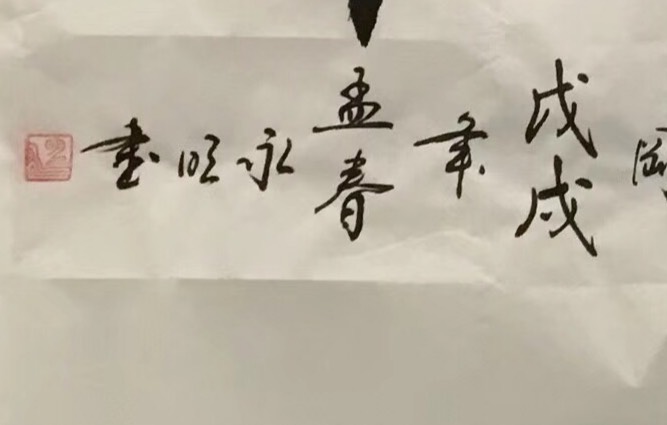 戊戌年孟春永旺書